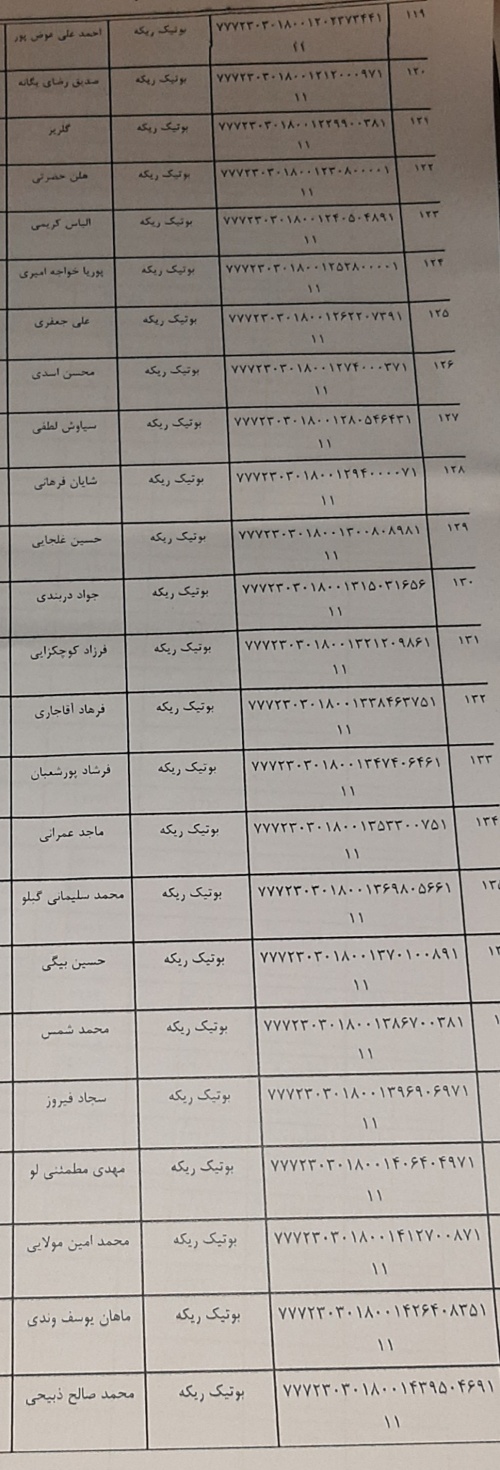 ۱۱۹ ۷۷۷۲۳۰۳۰۱۸۰۰۱۲۰۲۳۷۳۴۴۱ بوتیک ریکه احمد علی عوض پور
۱۱
۱۲۰ ۷۷۷۲۳۰۳۰۱۸۰۰۱۲۱۲۰۰۰۹۷۱ بوتیک ریکه صدیق رضای یگانه
۱۱
۱۲۱ ۷۷۷۲۳۰۳۰۱۸۰۰۱۲۲۹۹۰۰۳۸۱ بوتیک ریکه گلریر
۱۱
۱۲۲ ۷۷۷۲۳۰۳۰۱۸۰۰۱۲۳۰۸۰۰۰۰۱ بوتیک ریکه هلن حضرتی
۱۱
۱۲۳ ۷۷۷۲۳۰۳۰۱۸۰۰۱۲۴۰۵۰۴۸۹۱ بوتیک ریکه الیاس کریمی
۱۱
۱۲۴ ۷۷۷۲۳۰۳۰۱۸۰۰۱۲۵۲۸۰۰۰۰۱ بوتیک ریکه پوریا خواجه امیری
۱۱
۱۲۵ ۷۷۷۲۳۰۳۰۱۸۰۰۱۲۶۲۲۰۷۳۹۱ بوتیک ریکه علی جعفری
۱۱
۱۲۶ ۷۷۷۲۳۰۳۰۱۸۰۰۱۲۷۴۰۰۰۳۷۱ بوتیک ریکه محسن اسدی
۱۱
۱۲۷ ۷۷۷۲۳۰۳۰۱۸۰۰۱۲۸۰۵۴۶۴۳۱ بوتیک ریکه سیاوش لطفی
۱۱
۱۲۸ ۷۷۷۲۳۰۳۰۱۸۰۰۱۲۹۴۰۰۰۰۷۱ بوتیک ریکه شایان فرهانی
۱۱
۱۲۹ ۷۷۷۲۳۰۳۰۱۸۰۰۱۳۰۰۸۰۸۹۸۱ بوتیک ریکه حسین غلجایی
۱۱
۱۳۰ ۷۷۷۲۳۰۳۰۱۸۰۰۱۳۱۵۰۳۱۶۵۶ بوتیک ریکه جواد دربندی
۱۱
۱۳۱ ۷۷۷۲۳۰۳۰۱۸۰۰۱۳۲۱۲۰۹۸۶۱ بوتیک ریکه فرزاد کوچکزایی
۱۱
۱۳۲ ۷۷۷۲۳۰۳۰۱۸۰۰۱۳۳۸۴۶۳۷۵۱ بوتیک ریکه فرهاد آقاجاری
۱۱
۱۳۳ ۷۷۷۲۳۰۳۰۱۸۰۰۱۳۴۷۴۰۶۴۶۱ بوتیک ریکه فرشاد پورشعبان
۱۱
۱۳۴ ۷۷۷۲۳۰۳۰۱۸۰۰۱۳۵۳۳۰۰۷۵۱ بوتیک ریکه ماجد عمرانی
۱۱
۷۷۷۲۳۰۳۰۱۸۰۰۱۳۶۹۸۰۵۶۶۱ بوتیک ریکه محمد سلیمانی گیلو
۱۱
۷۷۷۲۳۰۳۰۱۸۰۰۱۳۷۰۱۰۰۸۹۱ بوتیک ریکه حسین بیگی
۱۱
۷۷۷۲۳۰۳۰۱۸۰۰۱۳۸۶۷۰۰۳۸۱ بوتیک ریکه محمد شمس
۱۱
۷۷۷۲۳۰۳۰۱۸۰۰۱۳۹۶۹۰۶۹۷۱ بوتیک ریکه سجاد فیروز
۱۱
۷۷۷۲۳۰۳۰۱۸۰۰۱۴۰۶۴۰۴۹۷۱ بوتیک ریکه مهدی مطمئنی لو
۱۱
۷۷۷۲۳۰۳۰۱۸۰۰۱۴۱۲۷۰۰۸۷۱ بوتیک ریکه محمد امین مولایی
۱۱
۷۷۷۲۳۰۳۰۱۸۰۰۱۴۲۶۴۰۸۳۵۱ بوتیک ریکه ماهان یوسف وندی
۱۱
۷۷۷۲۳۰۳۰۱۸۰۰۱۴۳۹۵۰۴۶۹۱ بوتیک ریکه محمد صالح ذبیحی
۱۱